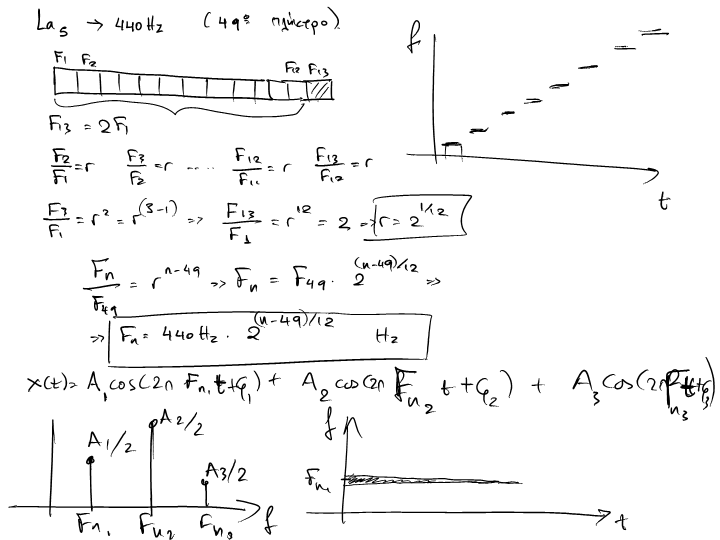 La₅ → 440Hz (49º πλήκτρο)
F₁ F₂ F₁₂ F₁₃
F₁₃ = 2F₁
F₂/F₁ = r F₃/F₂ = r ..... F₁₂/F₁₁ = r F₁₃/F₁₂ = r
F₃/F₁ = r² = r^(3-1) => F₁₃/F₁ = r^12 = 2 => r = 2^1/12
Fn/F₄₉ = r^n-49 => Fn = F₄₉ · 2^(n-49)/12 =>
=> Fn = 440Hz · 2^(n-49)/12 Hz
x(t) = A₁cos(2π Fn₁ t+φ₁) + A₂cos(2π Fn₂ t+φ₂) + A₃cos(2π Fn₃ t+φ₃)
f
t
A₁/2 A₂/2 A₃/2
Fn₁ Fn₂ f
f
Fn₁
t